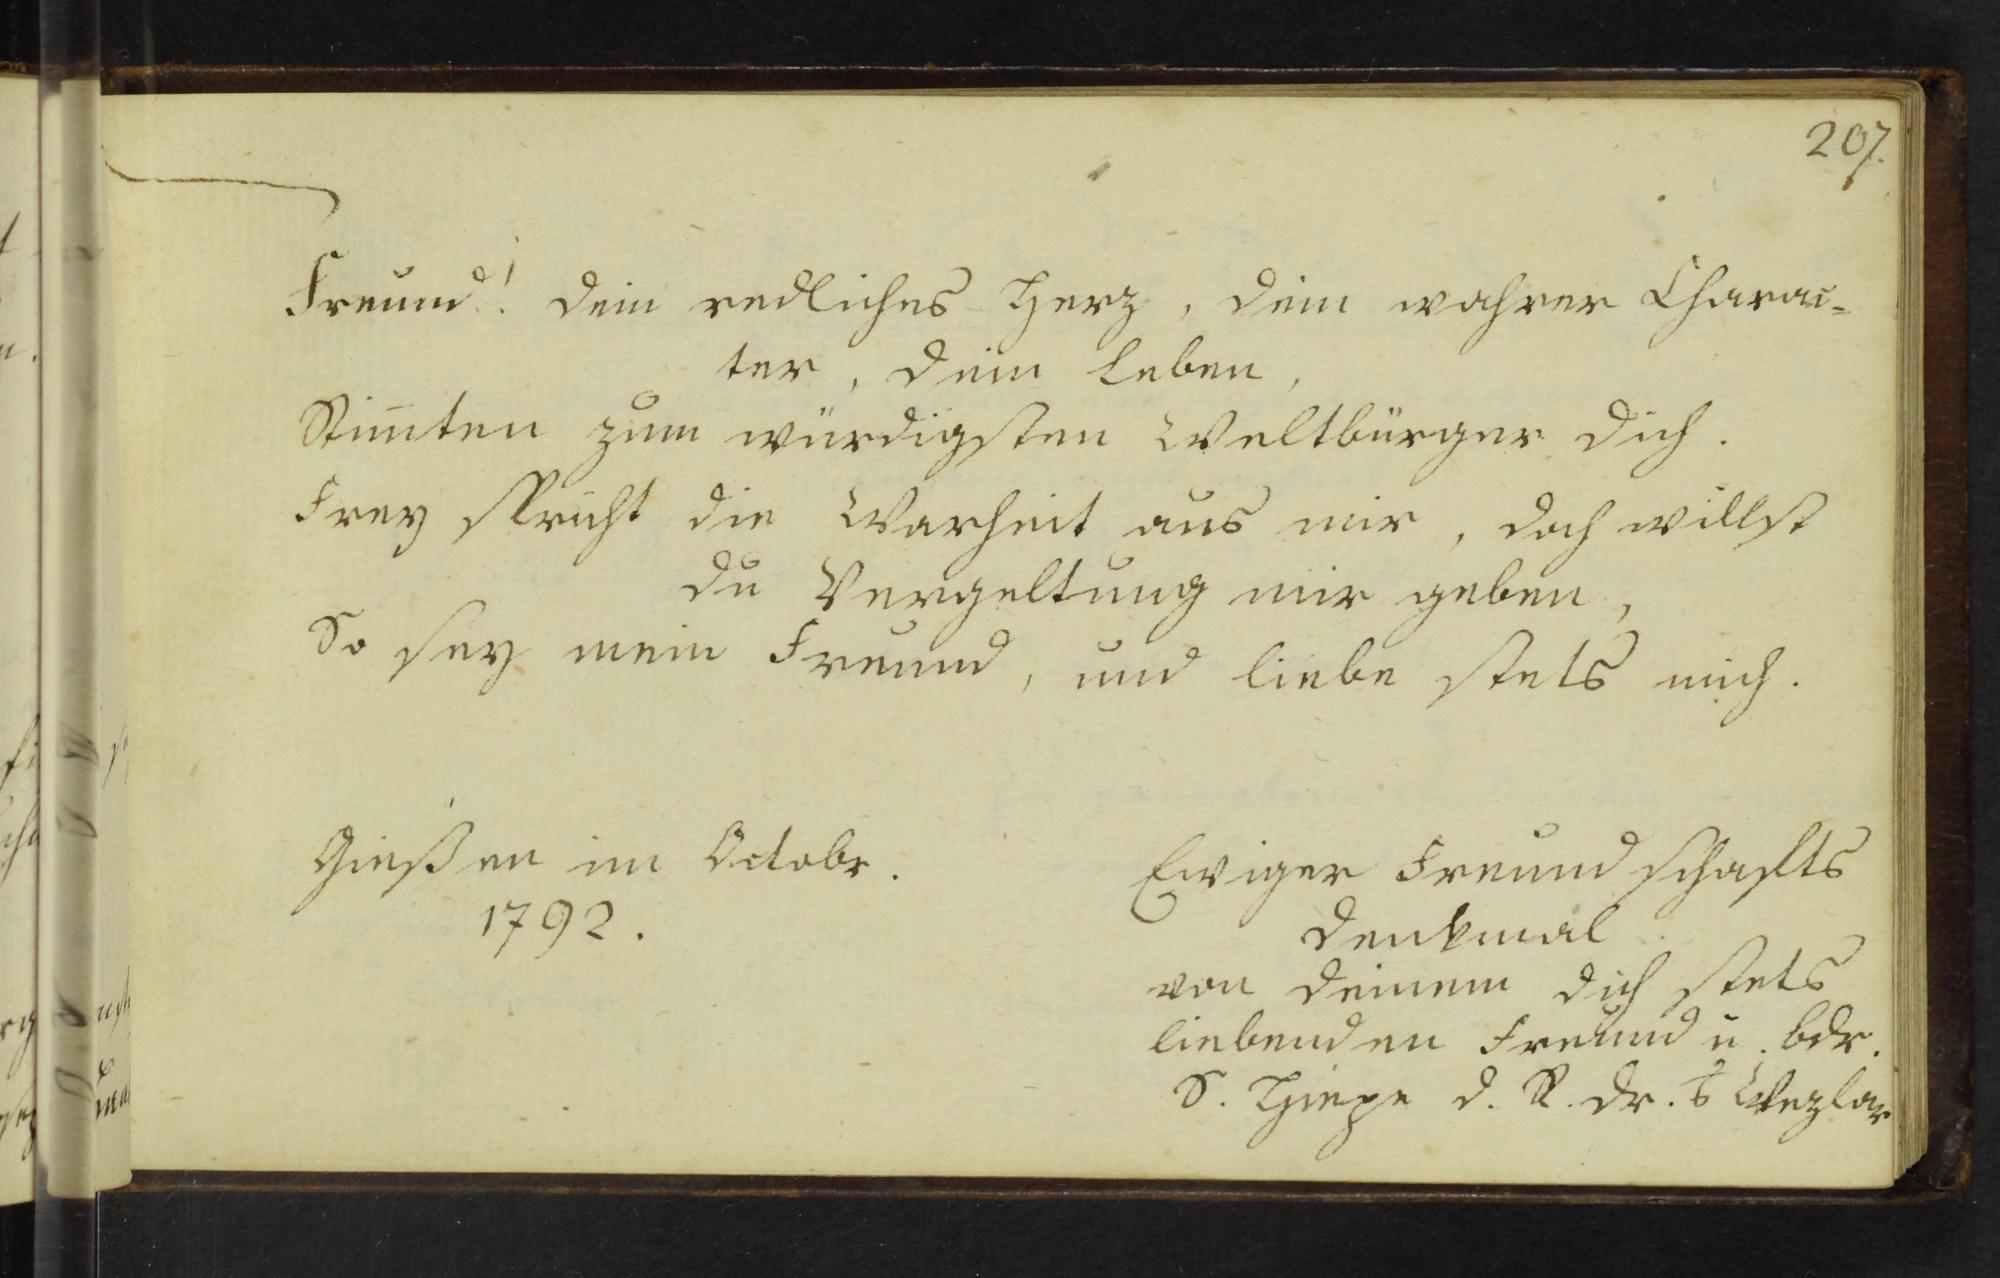 207.
Freund! dein redliches Herz, dein wahrer Charac-
ter, dein Leben,
Stim̅ten zum würdigsten Weltbürger dich.
Frey spricht die Warheit aus mir, doch willst
du Vergeltung mir geben,
So sey mein Freund, und liebe stets mich.
Gießen im Octobr.
1792.
Ewiger Freundschafts
Denkmal
von deinem dich stets
liebenden Freund u. bdr.
S. d. R. Wezlar